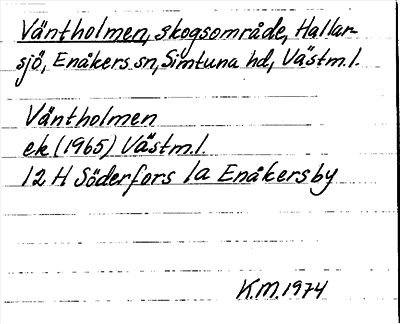 Väntholmen, skogsområde, Hallar-
sjö, Enåkers sn, Simtuna hd, Västm.l.
Väntholmen
ek (1965) Västm.l.
12 H Söderfors 1a Enåkersby
K.M. 1974